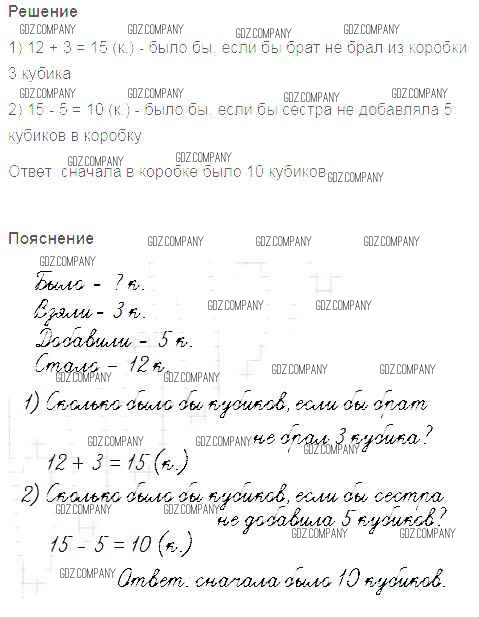 Решение
GDZ.COMPANY GDZ.COMPANY GDZ.COMPANY GDZ.COMPANY
1) 12 + 3 = 15 (к.) - было бы, если бы брат не брал из коробки
3 кубика
GDZ.COMPANY GDZ.COMPANY GDZ.COMPANY GDZ.COMPANY
2) 15 - 5 = 10 (к.) - было бы, если бы сестра не добавляла 5
кубиков в коробку
GDZ.COMPANY GDZ.COMPANY
Ответ: сначала в коробке было 10 кубиков
GDZ.COMPANY
Пояснение
GDZ.COMPANY GDZ.COMPANY GDZ.COMPANY
GDZ.COMPANY
Было - ? к.
Взяли - 3 к.
GDZ.COMPANY GDZ.COMPANY
Добавили - 5 к.
Стало - 12 к.
GDZ.COMPANY GDZ.COMPANY GDZ.COMPANY GDZ.COMPANY
1) Сколько было бы кубиков, если бы брат
не брал 3 кубика?
GDZ.COMPANY GDZ.COMPANY GDZ.COMPANY
12 + 3 = 15 (к.)
2) Сколько было бы кубиков, если бы сестра
GDZ.COMPANY GDZ.COMPANY GDZ.COMPANY GDZ.COMPANY
не добавила 5 кубиков?
GDZ.COMPANY GDZ.COMPANY
15 - 5 = 10 (к.)
GDZ.COMPANY
Ответ: сначала было 10 кубиков.